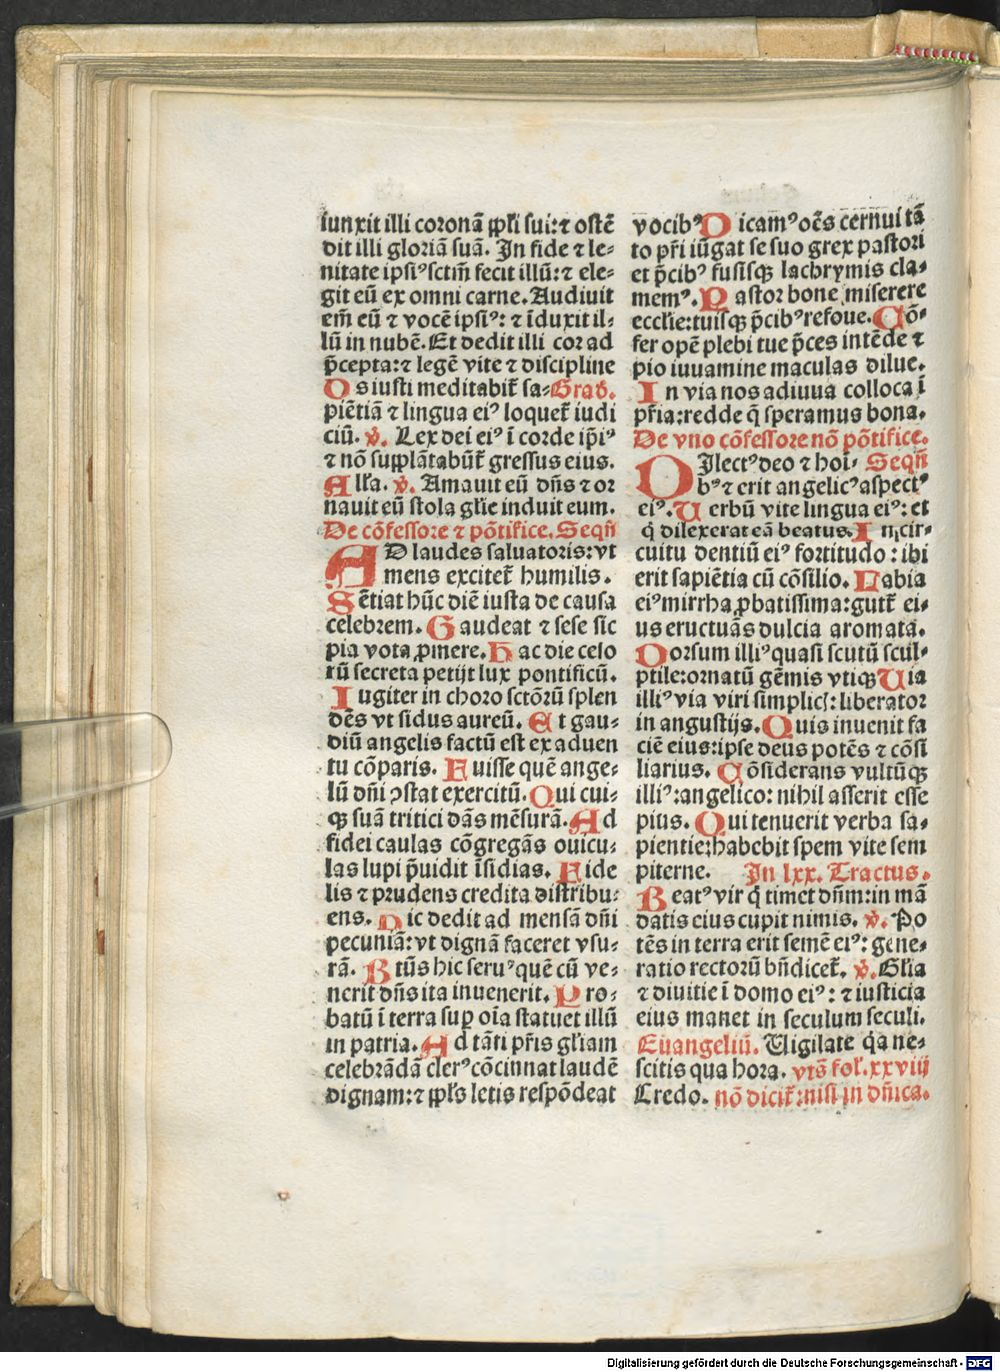 iunxit illi coronā ꝓpl̄i sui:⁊ ostē
dit illi gloriā suā. In fide ⁊ le⸗
nitate ipsiꝰ sctm̄ fecit illū:⁊ ele⸗
git eū ex omni carne. Audiuit
em̄ eū ⁊ vocē ipsiꝰ: ⁊ īduxit il⸗
lū in nubē. Et dedit illi cor ad
p̄cepta:⁊ legē vite ⁊ discipline
Os iusti meditabit̄ sa⸗ Grad.
piētiā ⁊ lingua eiꝰ loquet̄ iudi
ciū. v̄. Lex dei eiꝰ ī corde ip̄iꝰ
⁊ nō supplātabūt̄ gressus eius.
All̄a. v̄. Amauit eū dn̄s ⁊ or
nauit eū stola gl̄ie induit eum.
De cōfessore ⁊ pōtifice. Seqn̄
AD laudes saluatoris:vt
mens excitet̄ humilis.
Sētiat hūc diē iusta de causa
celebrem. Gaudeat ⁊ sese sic
pia vota ꝓmere. Hac die celo
rū secreta petijt lux pontificū.
Iugiter in choro sctōrū splen
dēs vt sidus aureū. Et gau⸗
diū angelis factū est ex aduen
tu cōparis. Fuisse quē ange⸗
lū dn̄i ꝯstat exercitū. Qui cui⸗
qꝫ suā tritici dās mēsurā. Ad
fidei caulas cōgregās ouicu⸗
las lupi p̄uidit īsidias. Fide
lis ⁊ prudens credita distribu⸗
ens. Hic dedit ad mensā dn̄i
pecuniā:vt dignā faceret vsu⸗
rā. Bt̄us hic seruꝰ quē cū ve⸗
nerit dn̄s ita inuenerit. Pro⸗
batū ī terra suꝑ oīa statuet illū
in patria. Ad tāti pr̄is gl̄iam
celebrādā clerꝰ cōcinnat laudē
dignam:⁊ ꝓpl̄s letis respōdeat
vocibꝰ Dicamꝰ oēs cernui tā
to pr̄i iūgat se suo grex pastori
et p̄cibꝰ fusisqꝫ lachrymis cla⸗
memꝰ. Pastor bone miserere
eccl̄ie:tuisqꝫ p̄cibꝰ refoue. Cō⸗
fer opē plebi tue p̄ces intēde ⁊
pio iuuamine maculas dilue.
In via nos adiuua colloca ī
pr̄ia:redde q̄ speramus bona.
De vno cōfessore nō pōtifice.
DIlectꝰ deo ⁊ hoi⸗ Seqn̄
bꝰ ⁊ erit angelicꝰ aspectꝰ
eiꝰ. Uerbū vite lingua eiꝰ: et
q̄ dilexerat eā beatus. In cir⸗
cuitu dentiū eiꝰ fortitudo: ibi
erit sapiētia cū cōsilio. Labia
eiꝰ mirrha ꝓbatissima:gutt̄ ei⸗
us eructuās dulcia aromata.
Dorsum illiꝰ quasi scutū scul⸗
ptile:ornatū gēmis vtiqꝫ Uia
illiꝰ via viri simplicꝭ: liberator
in angustijs. Quis inuenit fa
ciē eius:ipse deus potēs ⁊ cōsi
liarius. Cōsiderans vultūqꝫ
illiꝰ:angelico: nihil asserit esse
pius. Qui tenuerit verba sa⸗
pientie:habebit spem vite sem
piterne. In lxx. Tractus.
Beatꝰ vir q̄ timet dn̄m:in mā
datis eius cupit nimis. v̄. Po
tēs in terra erit semē eiꝰ: gene⸗
ratio rectorū bn̄dicet̄. v̄. Gl̄ia
⁊ diuitie ī domo eiꝰ: ⁊ iusticia
eius manet in seculum seculi.
Euangeliū. Uigilate q̄a ne⸗
scitis qua hora. vts̄ fol. xxviij
Credo. nō dicit̄:nisi in dn̄ica.
Digitalisierung gefördert durch die Deutsche Forschungsgemeinschaft - DFG